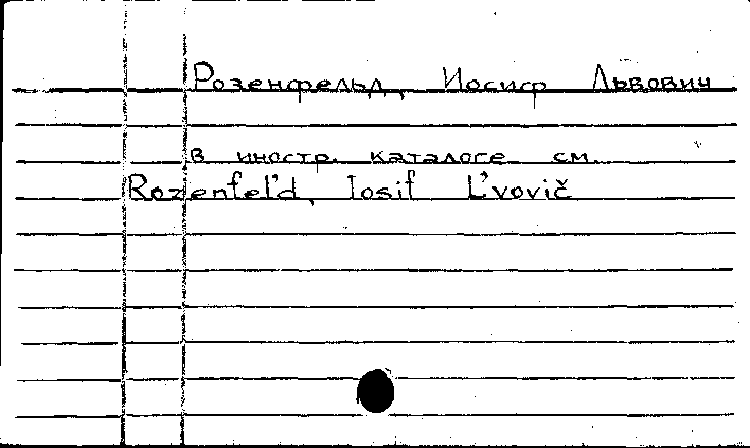 Розенфельд, Иосиф Львович
в иностр. каталоге см.
Rozenfel'd, Iosif L'vovič